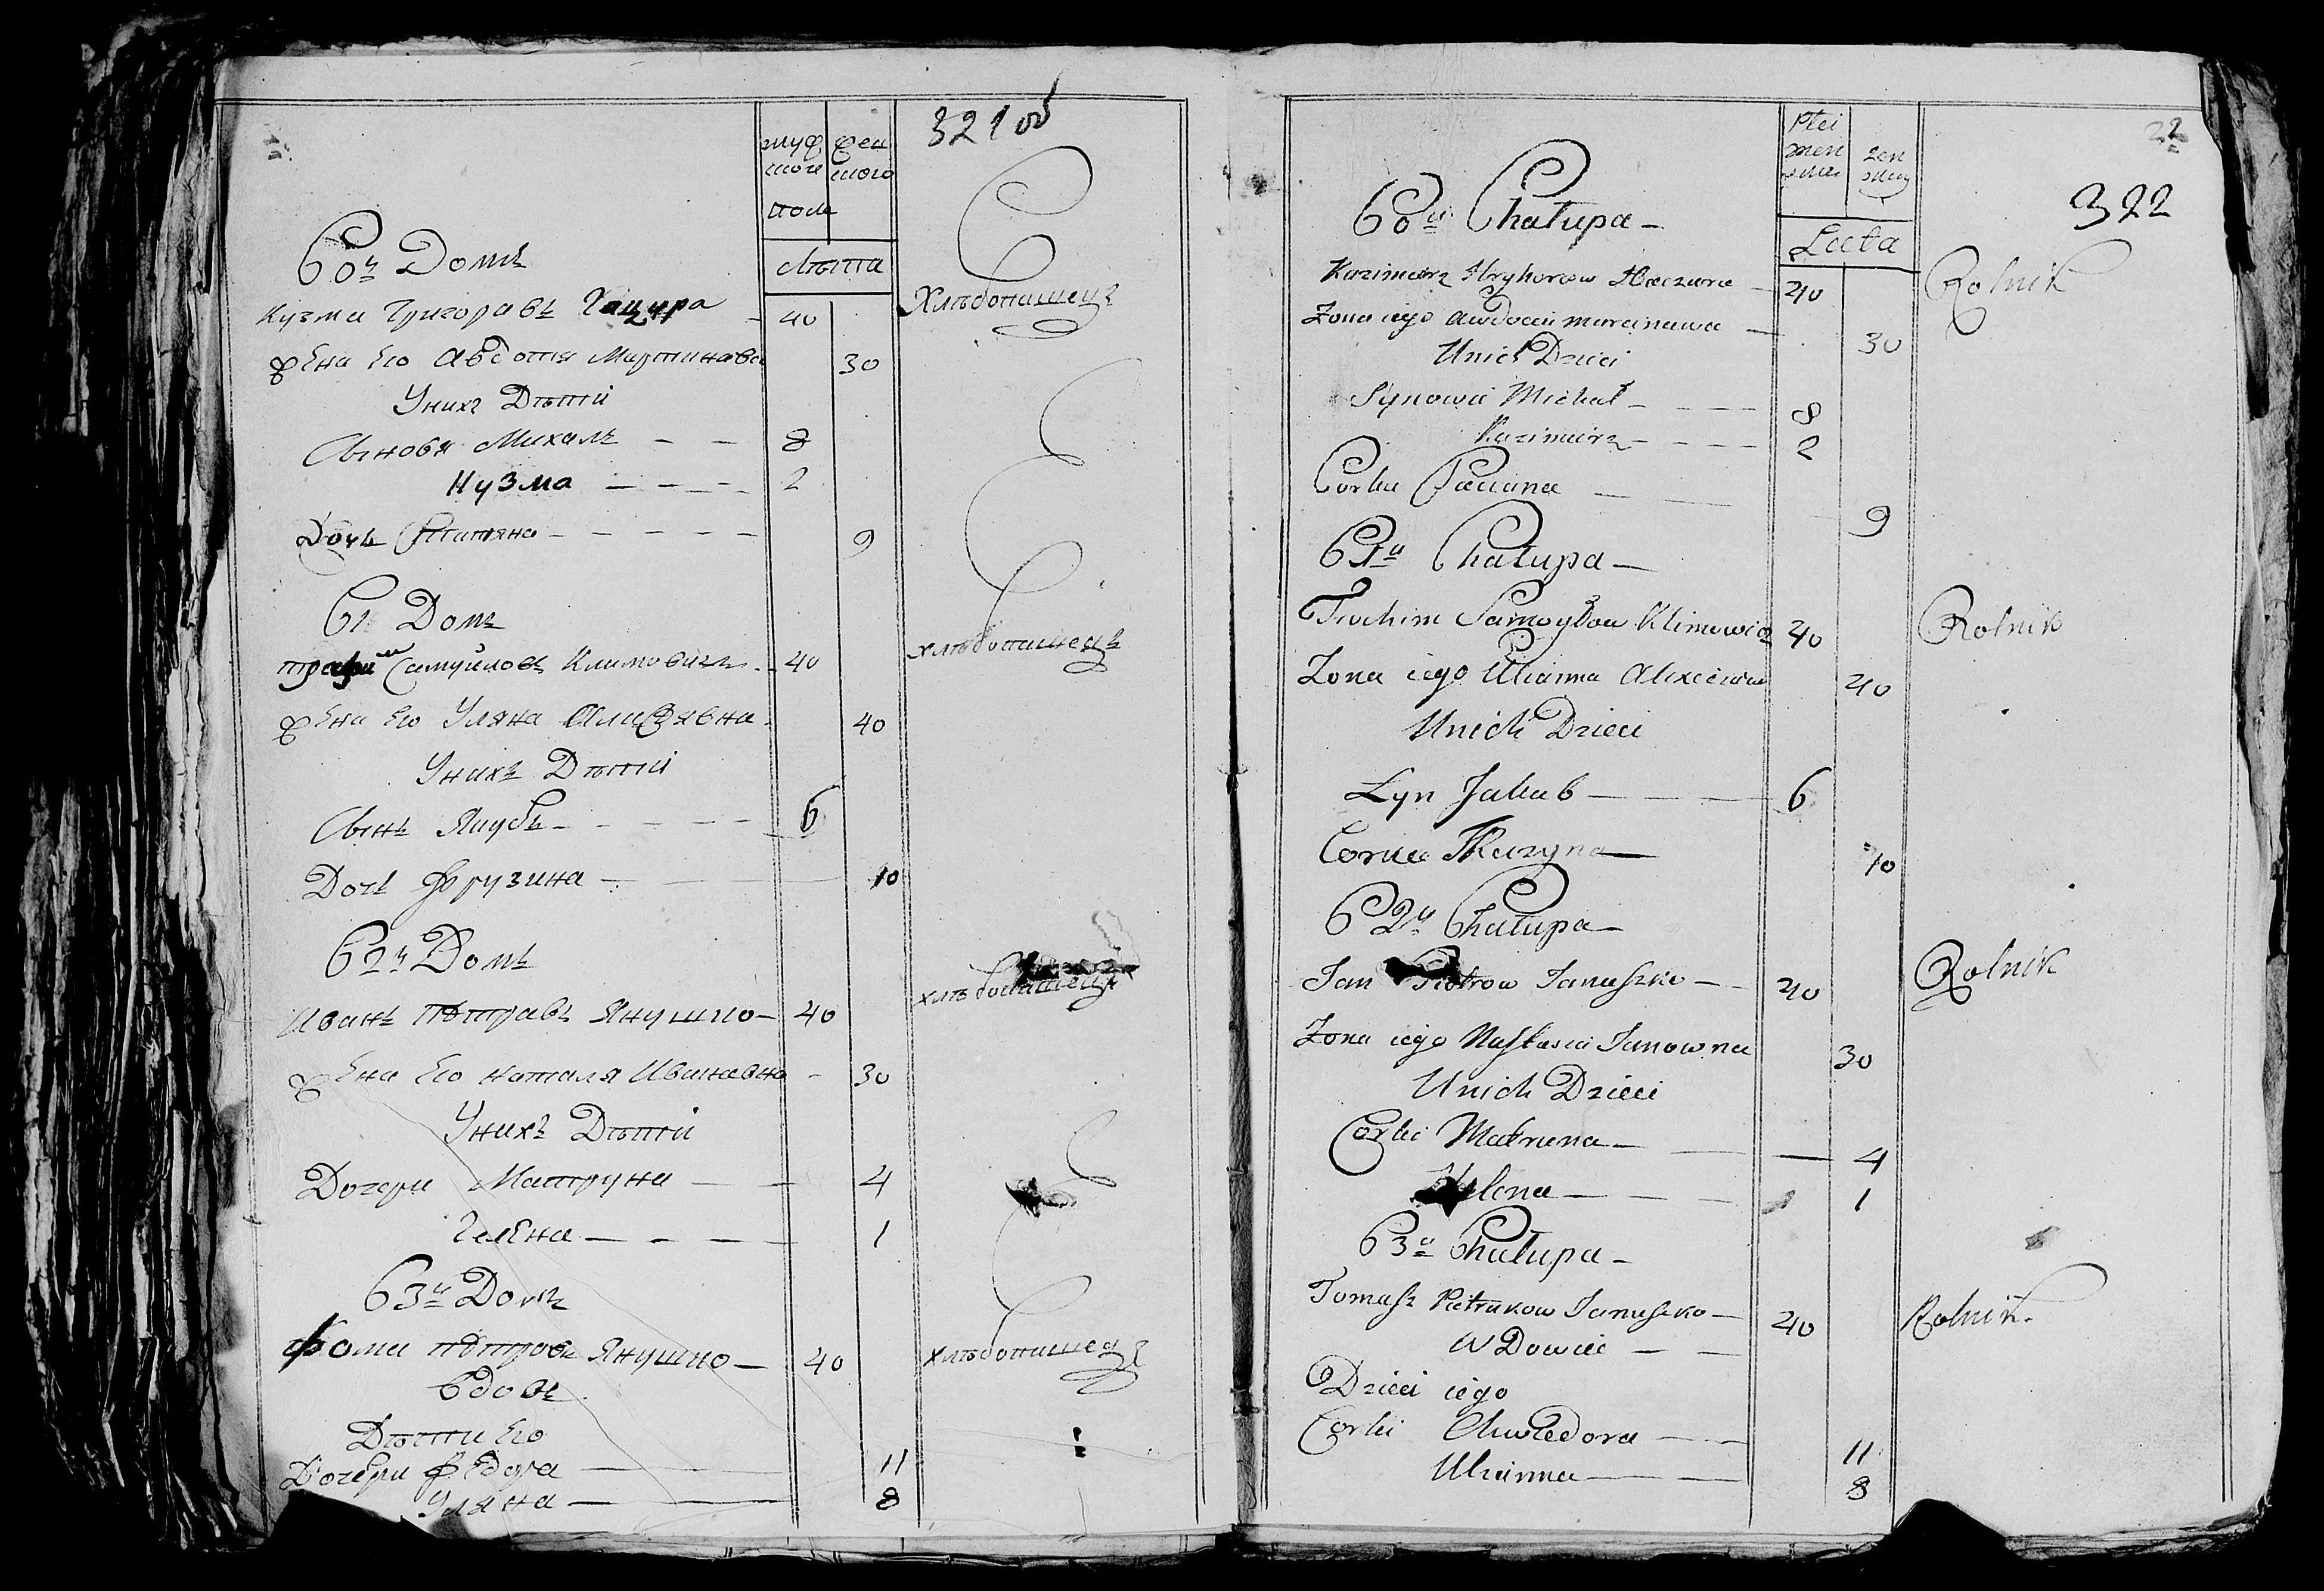 321 об
муж
ского
жен
ского
пола
лѣта
60й Домъ
Кузма Григоравъ Гацура - 40 Хлѣбопашецъ
жена Его Авдотя Мартинава 30
Унихъ Дѣтй
Сынови Михалъ - - 8
Кузма - - - - 2
Дочь Татяна - - - - - 9
61 Домъ
Трафим Самуйловъ Климовичъ - 40 хлѣбопашецъ
жена Его Уляна Алисѣявна - 40
Унихъ Дѣтй
Сынъ Якубъ - - - - - 6
Дочь Фрузина - 10
62й Домъ
Иванъ Пѣтравъ Янушко - 40 хлѣбопашецъ
жена Его Наталя Иванавна - 30
Унихъ Дѣтй
Дочери Матруна - - 4
Гелена - - - - 1
63й Домъ
Фома Пѣтровъ Янушко - 40 хлѣбопашецъ
вдовъ
Дѣти Его
Дочери Федора - 11
Уляна - 8
22
322
Płci
męz
zen
Leeta
60a Chałupa -
Kazimierz Hryhorow Haczura - 40 Rolnik
Zona iego Awdocia Marcinawa - 30
Unich Dzieci
Synowie Michał - - - - 8
Kazimierz - - - - 2
Corka Taciana - - 9
61a Chałupa -
Trochim Samoyłow Klimowicz 40 Rolnik
Zona iego Ulianna Alexieiewa 40
Unich Dzieci
Syn Jakub - - - 6
Corka Fruzyna - 10
62a Chałupa -
Jan Piotrow Januszko - - 40 Rolnik
Zona iego Nastazia Janowna 30
Unich Dzieci
Corki Matruna - - - 4
Helena - - - - 1
63a Chałupa -
Tomasz Pietrukow Januszko - 40 Rolnik.
Wdowiec - -
Dzieci iego
Corki Chwiedora - - 11
Ulianna - - 8